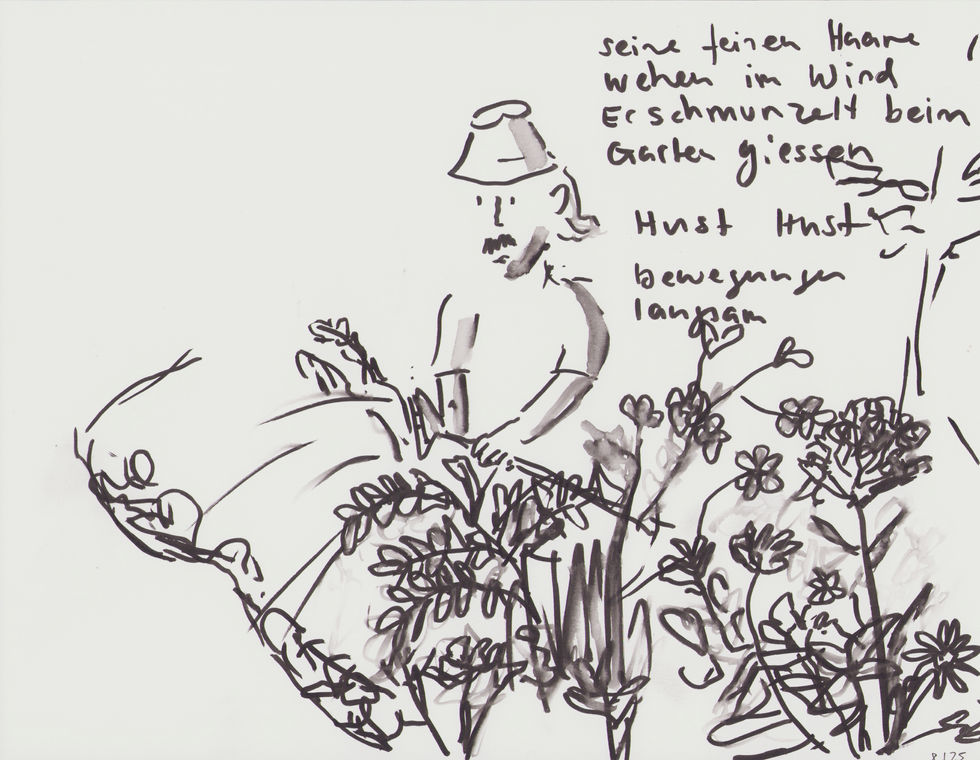 seine feinen Haare
wehen im Wind
Er schmunzelt beim
Garten giessen
Hust Hust
bewegungen
langsam
8/25